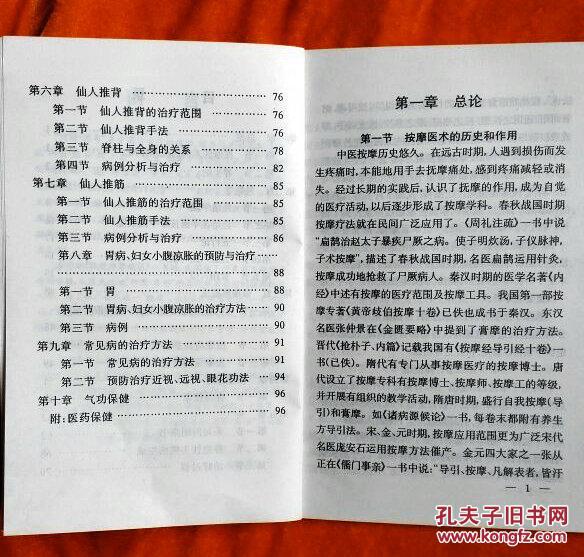 第六章 仙人推背 ………… 76
第一节 仙人推背的治疗范围 ………… 76
第二节 仙人推背手法 ………… 76
第三节 脊柱与全身的关系 ………… 78
第四节 病例分析与治疗 ………… 82
第七章 仙人推筋 ………… 85
第一节 仙人推筋的治疗范围 ………… 85
第二节 仙人推筋手法 ………… 85
第三节 病例分析与治疗 ………… 86
第八章 胃病、妇女小腹凉胀的预防与治疗 ……
………… 88
第一节 胃 ………… 88
第二节 胃病、妇女小腹凉胀的治疗方法 …… 90
第三节 病例 ………… 90
第九章 常见病的治疗方法 ………… 91
第一节 常见病的治疗方法 ………… 91
第二节 预防治疗近视、远视、眼花功法 …… 94
第十章 气功保健 ………… 96
附:医药保健 ………… 96
第一章 总论
第一节 按摩医术的历史和作用
中医按摩历史悠久。在远古时期,人遇到损伤而发
生疼痛时,本能地用手去抚摩痛处,感到疼痛减轻或消
失。经过长期的实践后,认识了抚摩的作用,成为自觉
的医疗活动,以后逐步形成了按摩学科。春秋战国时期
按摩疗法就在民间广泛应用了。《周礼注疏》一书中说
“扁鹊治赵太子暴疾尸厥之病。使子明炊汤,子仪脉神,
子术按摩”,描述了春秋战国时期,名医扁鹊运用针灸,
按摩成功地抢救了尸厥病人。秦汉时期的医学名著《内
经》中述有按摩的医疗范围及按摩工具。我国第一部按
摩专著《黄帝歧伯按摩十卷》已佚也成书于秦汉。东汉
名医张仲景在《金匮要略》中提到了膏摩的治疗方法。
晋代《抢朴子、内篇》记载我国有《按摩经导引经十卷》一
书(已佚)。隋代有专门从事按摩医疗的按摩博士。唐
代设立了按摩专科有按摩博士、按摩师、按摩工的等级,
并开展有组织的教学活动,隋唐时期,盛行自我按摩(导
引)和膏摩。如《诸病源候论》一书,每卷末都附有养生
方导引法。宋、金、元时期,按摩应用范围更为广泛宋代
名医庞安石运用按摩方法催产。金元四大家之一张从
正在《儒门事亲》一书中说:“导引、按摩、凡解表者,皆汗
— 1 —
孔夫子旧书网